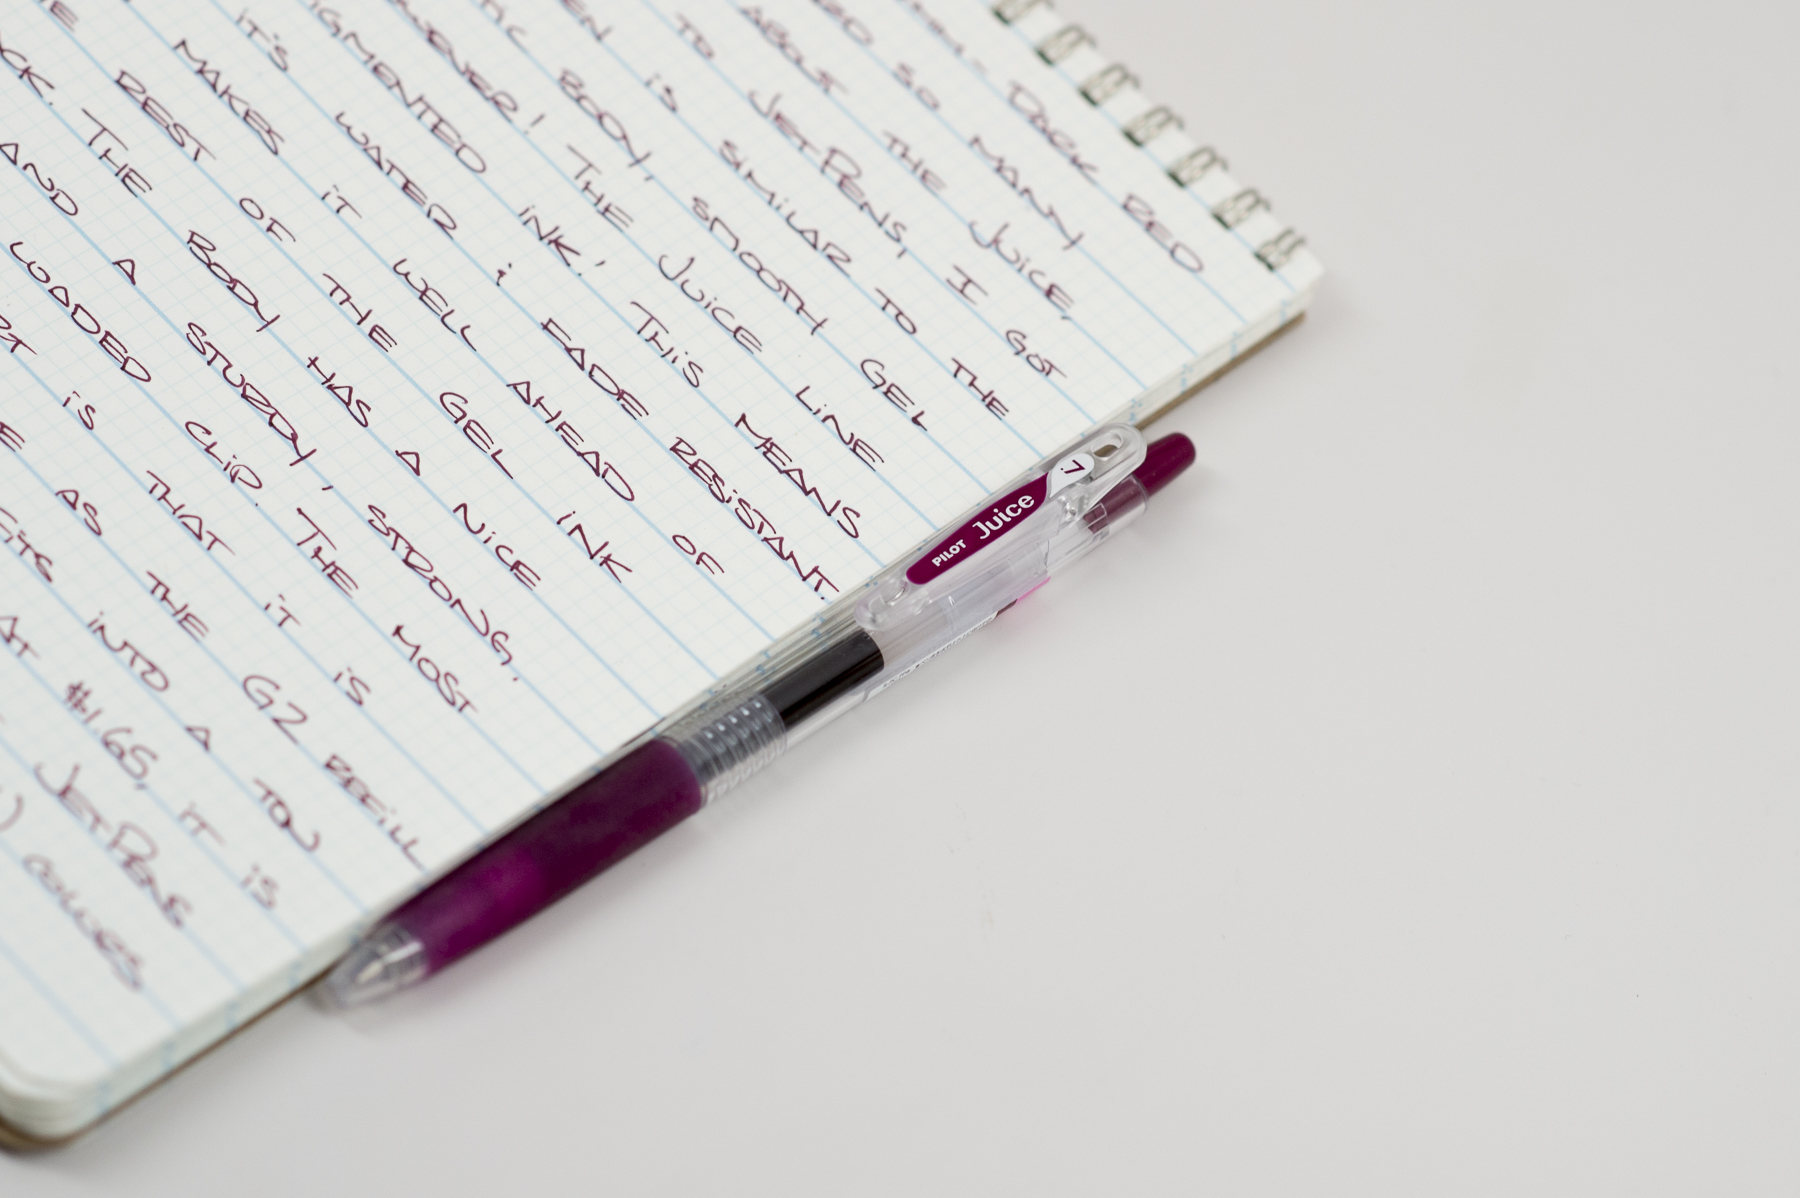 DARK RED
SO MANY
ABOUT THE JUICE,
TO JETPENS, I GOT
IS SIMILAR TO THE
BODY, SMOOTH GEL
THE JUICE LINE
INK! THIS MEANS
IT'S WATER & FADE RESISTANT.
MAKES IT WELL AHEAD OF
REST OF THE GEL INK
THE BODY HAS A NICE
AND A STURDY, STRONG,
LOADED CLIP. THE MOST
IS THAT IT IS
AS THE G2 REFILL
FITS INTO A TON
AT $1.65, IT IS
JETPENS
COLORS
PILOT Juice .7